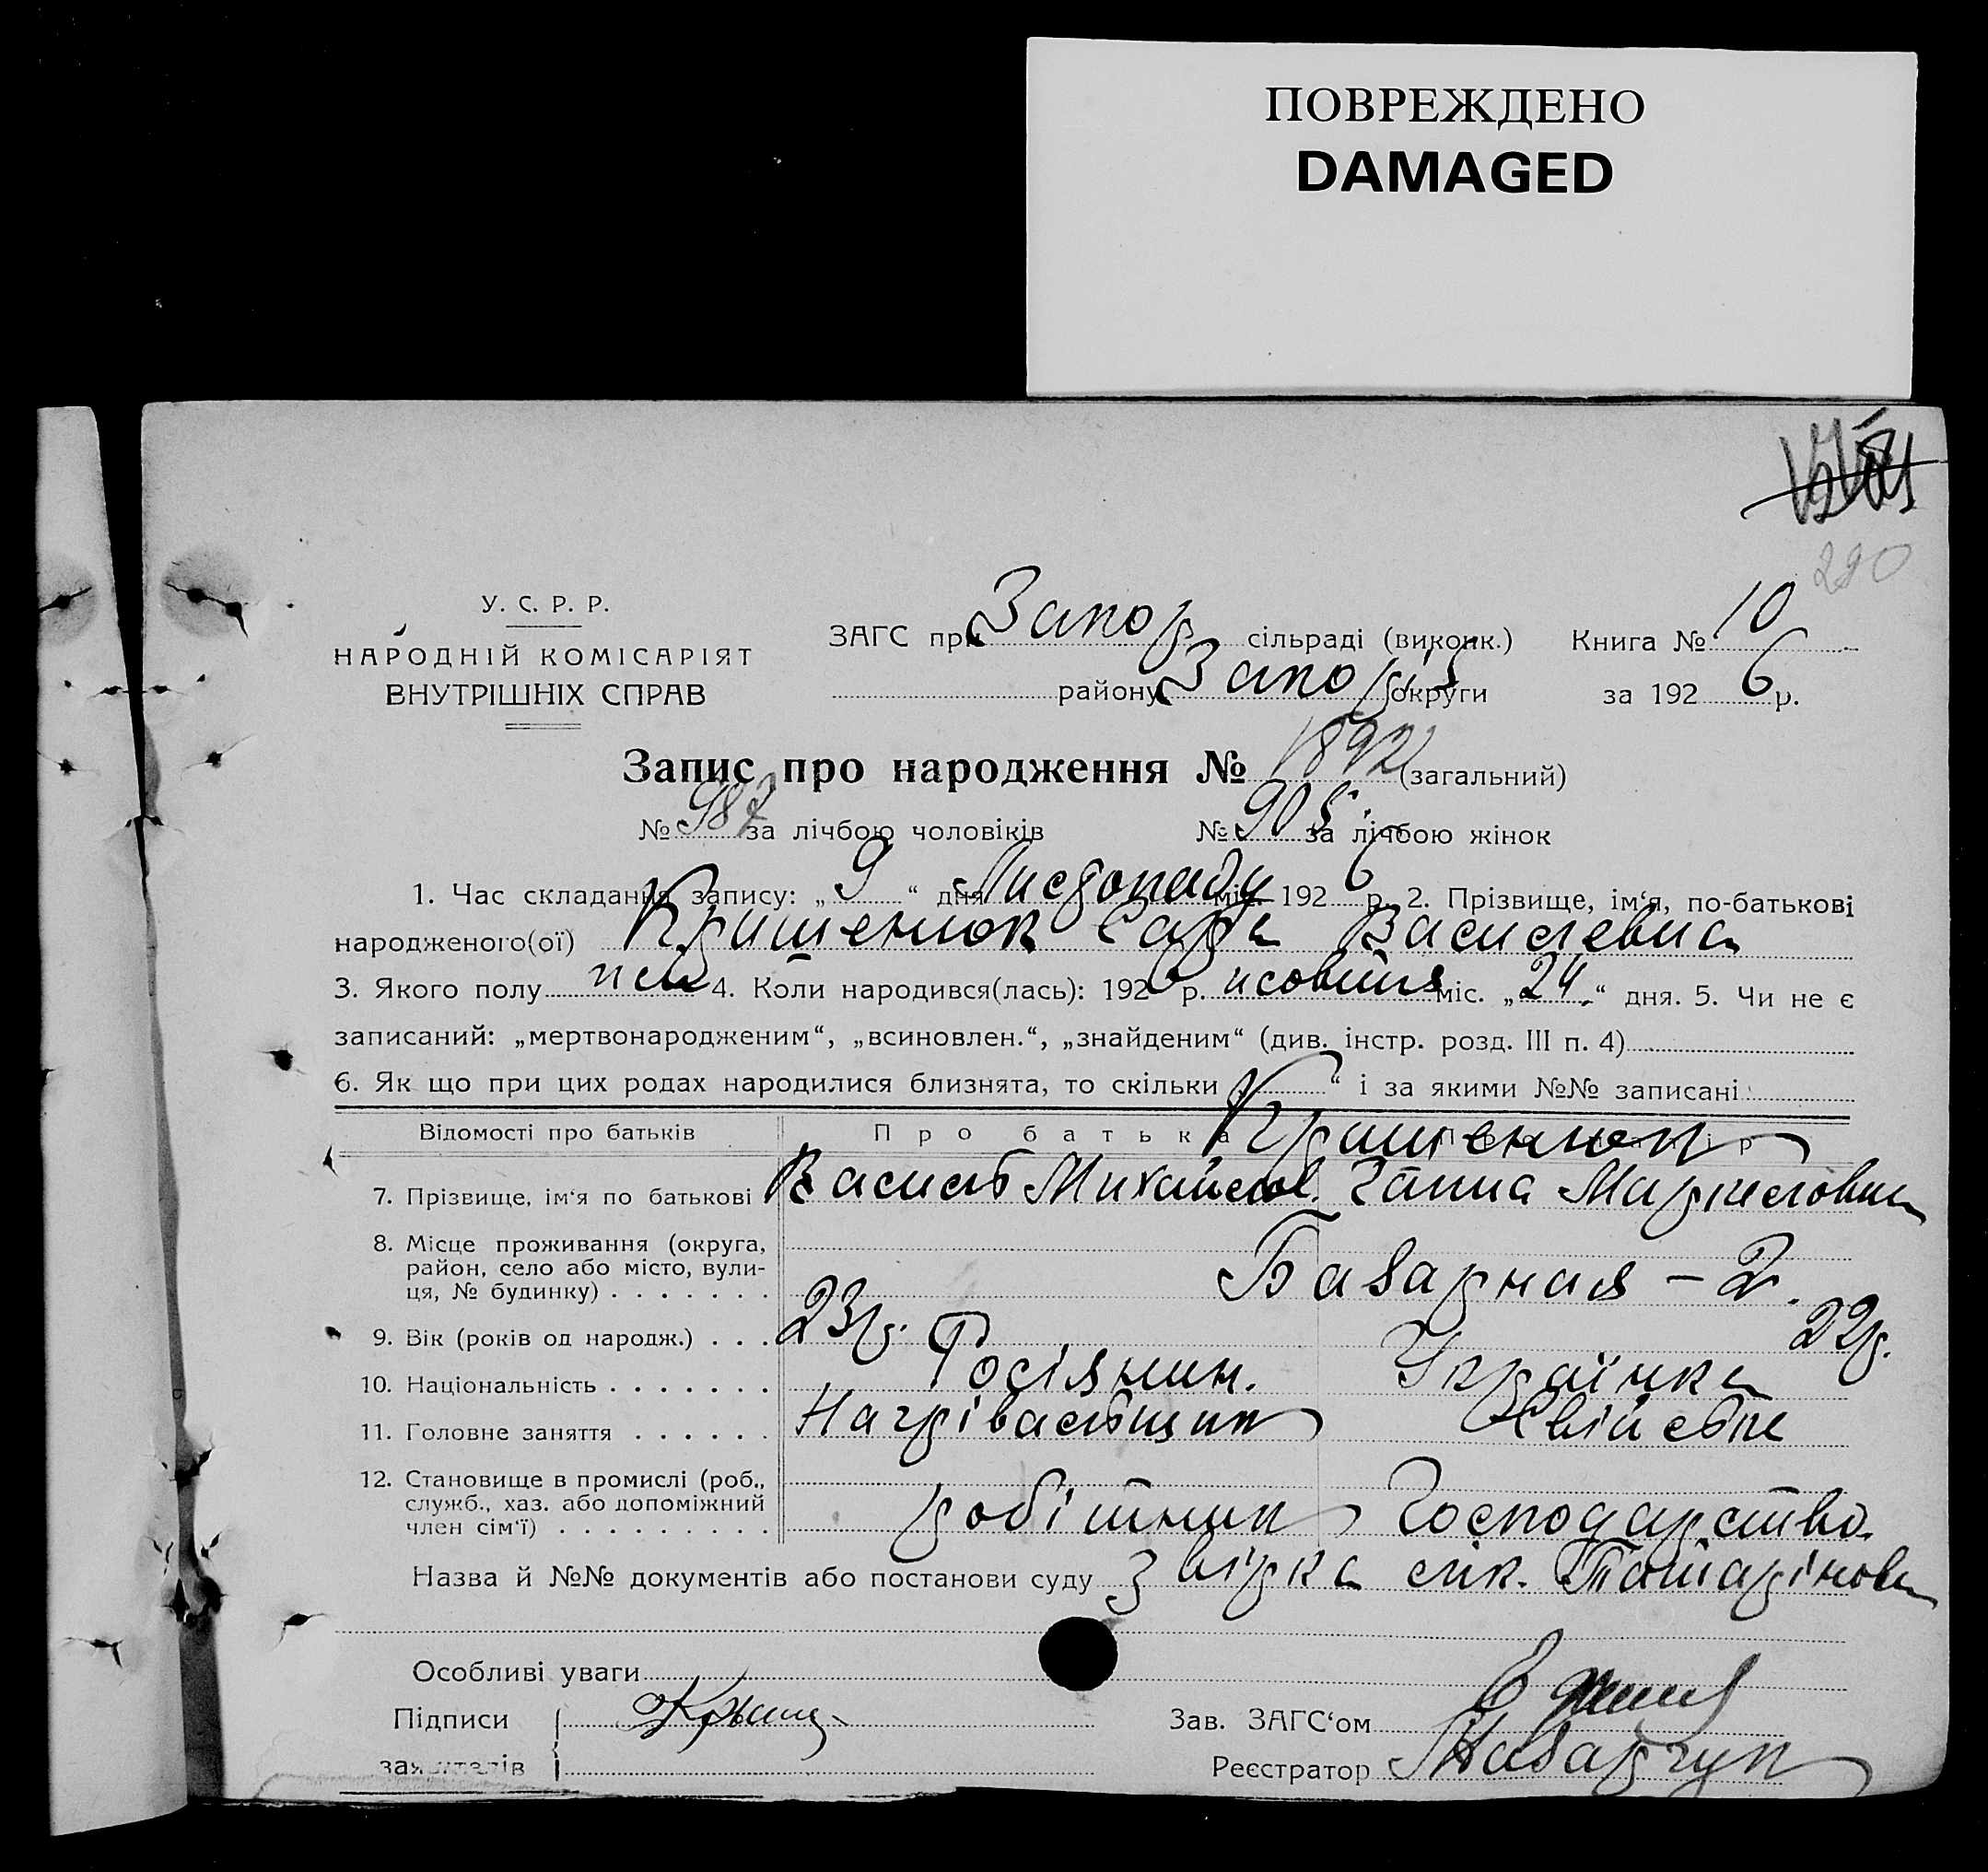 ПОВРЕЖДЕНО
DAMAGED
290
У. С. Р. Р.
НАРОДНІЙ КОМІСАРІЯТ
ВНУТРІШНІХ СПРАВ
ЗАГС при Запор сільраді (виконк.) Книга № 10
району Запоріз округи за 1926 р.
Запис про народження № 1892 (загальний)
№ 987 за лічбою чоловіків № 905 за лічбою жінок
1. Час складання запису: „9“ дня Листопаду міс. 1926 р. 2. Прізвище, ім‘я, по-батькові
народженого(ої) Кришенюк Сара Василевна
3. Якого полу 4. Коли народився(лась): 1926 р. жовтня міс. „24“ дня. 5. Чи не є
записаний: „мертвонародженим“, „всиновлен.“, „знайденим“ (див. інстр. розд. III п. 4)
6. Як що при цих родах народилися близнята, то скільки „ “ і за якими №№ записані
Відомості про батьків Про батька Кришенюк
7. Прізвище, ім‘я по батькові Василь Михайлов. Ганна Маркеловна
8. Місце проживання (округа,
район, село або місто, вули-
ця, № будинку) . . . . . . . Базарная – 2.
9. Вік (років од народж.) . . . 23р. 22р.
10. Національність . . . . . . . Росіянин. Українка
11. Головне заняття . . . . . . Нагрівальщик Хвійське
12. Становище в промислі (роб.,
служб., хаз. або допоміжний
член сім‘ї) . . . . . . . . . робітник Господарство
Назва й №№ документів або постанови суду Звірка лік. Татарінова
Особливі уваги
Підписи Крыш
заявителів
Зав. ЗАГС‘ом
Реєстратор